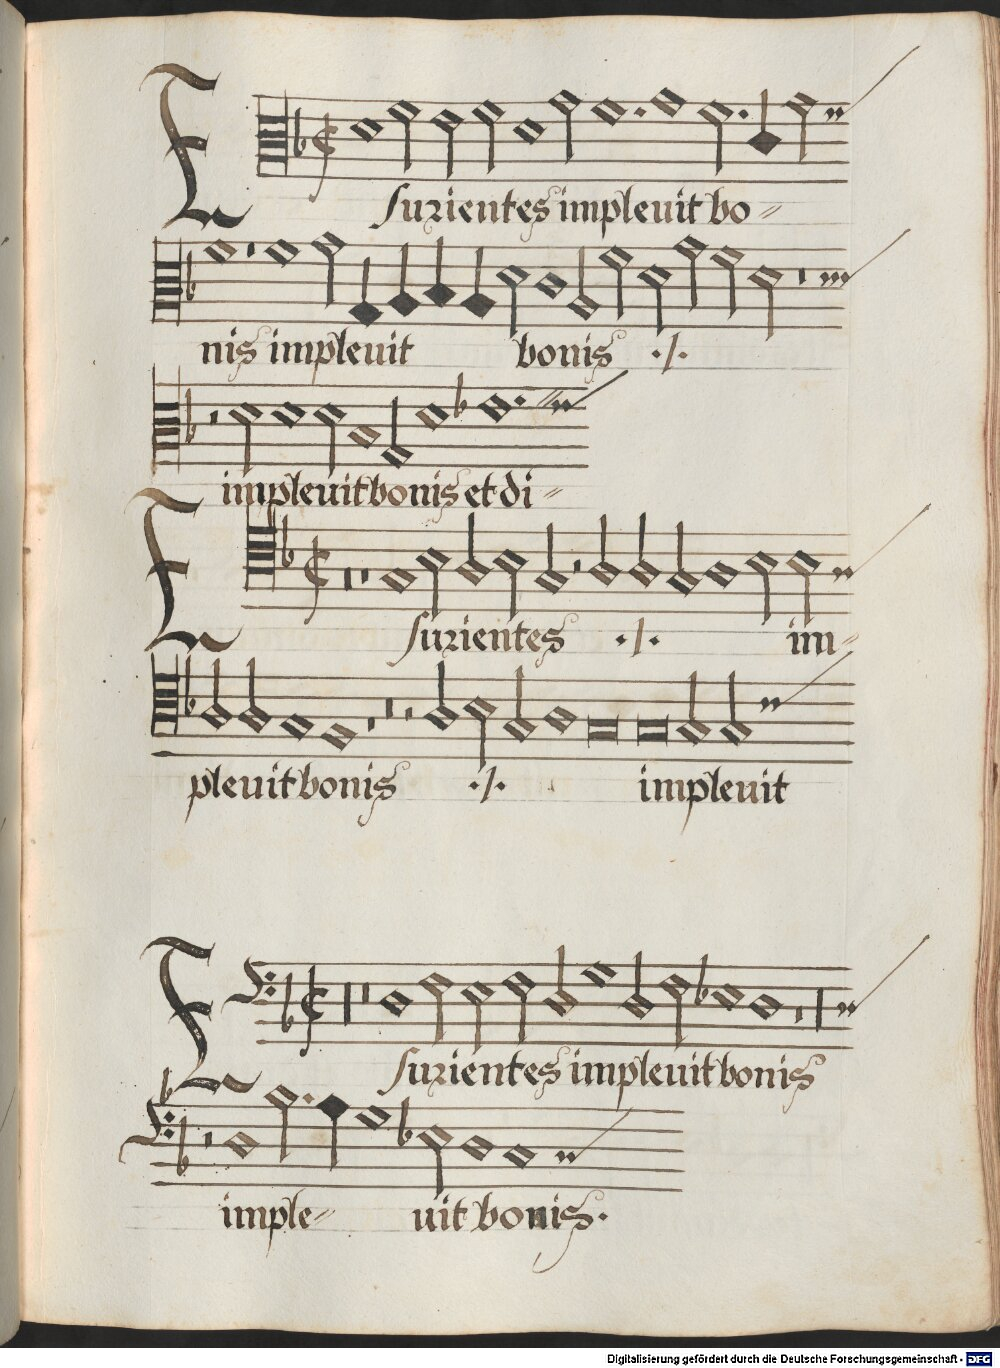 Esurientes impleuit bo-
nis impleuit bonis ./.
impleuit bonis et di-
Esurientes ./. im-
pleuit bonis ./. impleuit
Esurientes impleuit bonis
imple- uit bonis.
Digitalisierung gefördert durch die Deutsche Forschungsgemeinschaft - DFG